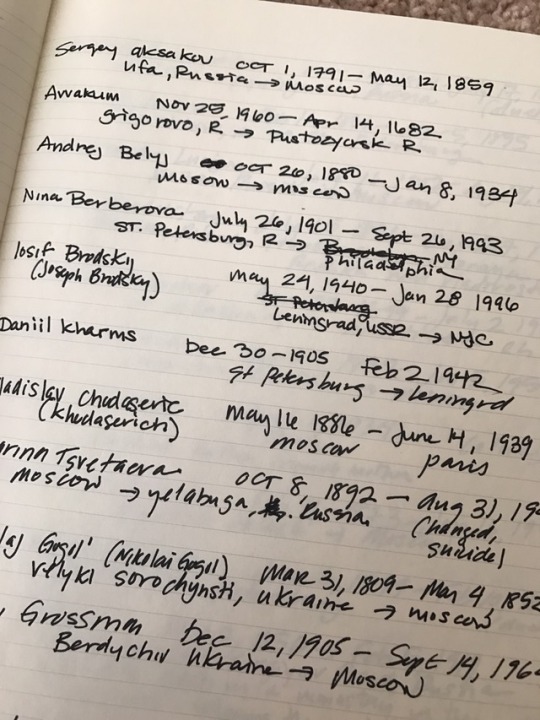 Sergey aksakov OCT 1, 1791 – May 12, 1859
Ufa, Russia → Moscow
Avvakum Nov 25, 1960 – Apr 14, 1682
Grigorovo, R → Pustozyorsk R
Andrej Belyj OCT 26, 1880 – Jan 8, 1934
Moscow → Moscow
Nina Berberova July 26, 1901 – Sept 26, 1993
ST. Petersburg, R → NY
Philadelphia
Iosif Brodskij May 24, 1940 – Jan 28 1996
(Joseph Brodsky) St Petersburg
Leningrad, USSR → NYC
Daniil Kharms Dec 30 – 1905 Feb 2 1942
St Petersburg → Leningrad
ladislav Chodaseric May 16 1886 – June 14, 1939
(Khudaserich) moscow paris
arina Tsvetaeva OCT 8, 1892 – Aug 31, 19
Moscow → yelabuga, Russia (hanged,
suicide)
laj Gogol' (Nikolai Gogol) Mar 31, 1809 – Mar 4, 1852
Velyki Sorochynsti, Ukraine → Moscow
Grossman Dec 12, 1905 – Sept 14, 196
Berdychiv Ukraine → Moscow